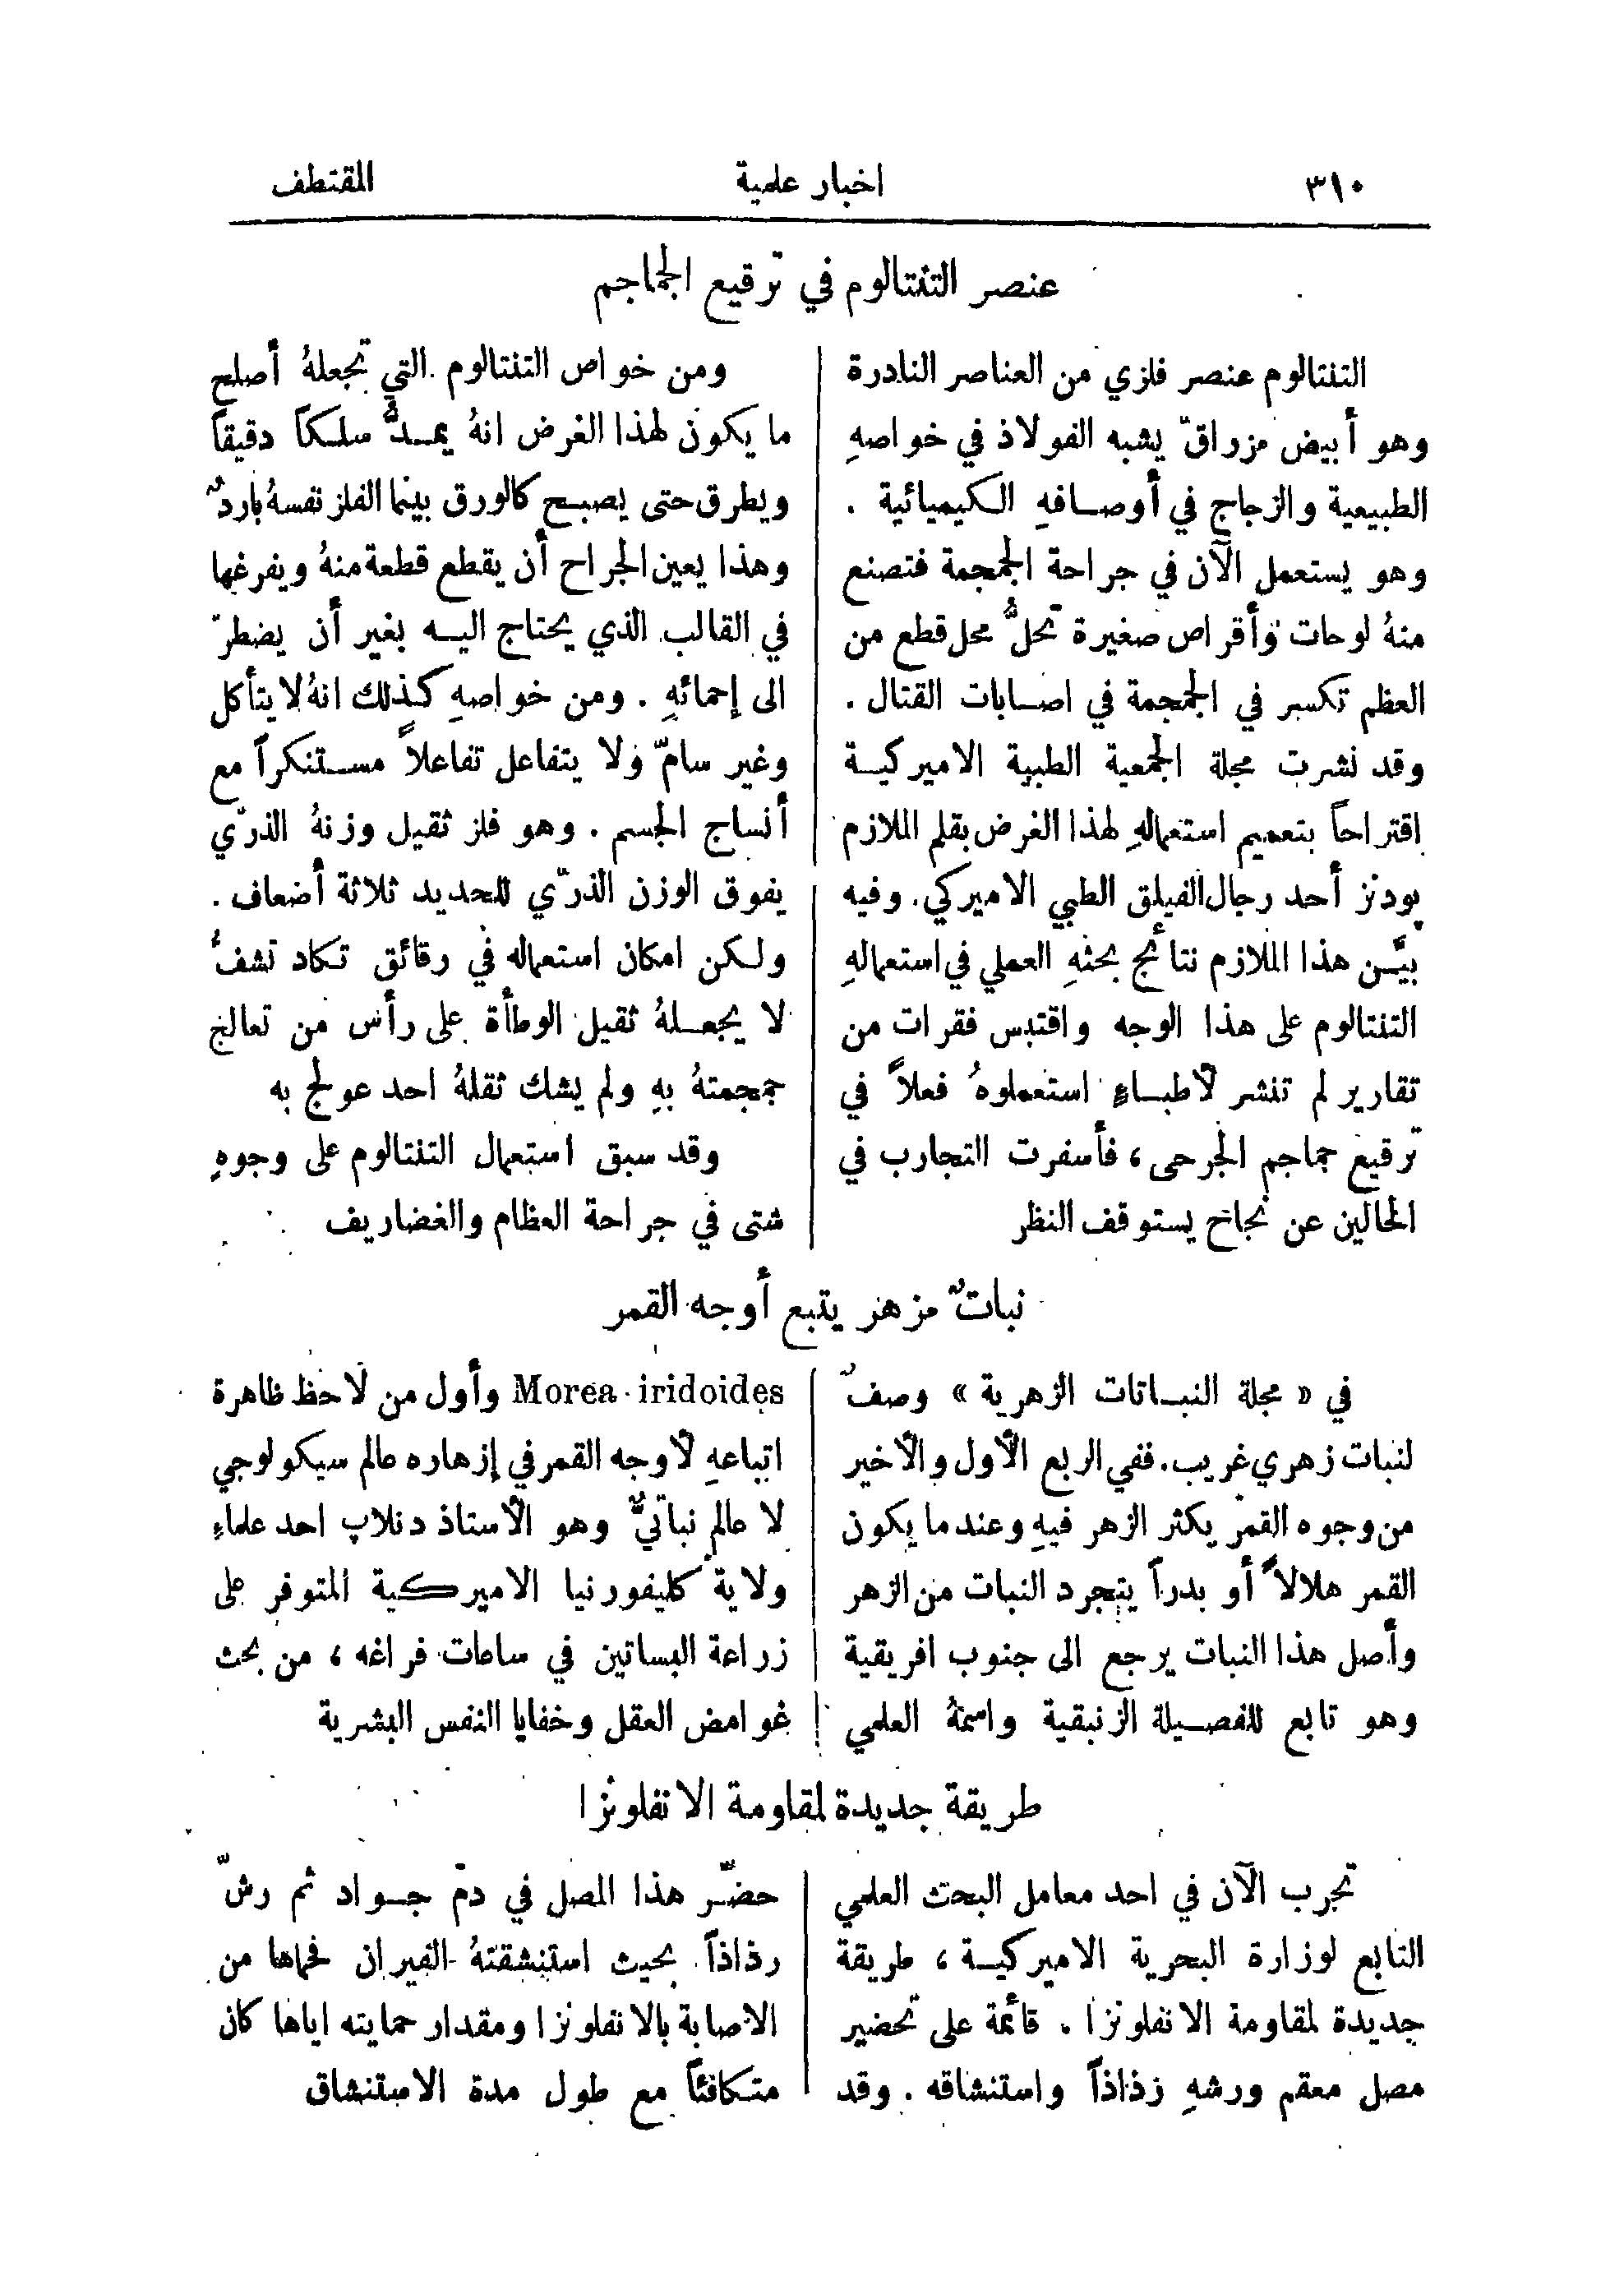 ٣١٠ اخبار علمية المقتطف
عنصر التنتالوم في ترقيع الجماجم
التنتالوم عنصر فلزي من العناصر النادرة
وهو أبيض مزراقّ يشبه الفولاذ في خواصهِ
الطبيعية والزجاج في أوصافهِ الكيميائية .
وهو يستعمل الآن في جراحة الجمجمة فتصنع
منهُ لوحات وأقراص صغيرة تحلُّ محل قطع من
العظم تكسر في الجمجمة في اصابات القتال .
وقد نشرت مجلة الجمعية الطبية الاميركية
اقتراحاً بتعميم استعمالهِ لهذا الغرض بقلم الملازم
پودنز أحد رجال الفيلق الطبي الاميركي . وفيه
بيَّن هذا الملازم نتائج بحثهِ العملي في استعمالهِ
التنتالوم على هذا الوجه واقتبس فقرات من
تقارير لم تنشر لأطباءٍ استعملوهُ فعلاً في
ترقيع جماجم الجرحى ، فأسفرت التجارب في
الحالين عن نجاح يستوقف النظر
ومن خواص التنتالوم التي تجعلهُ أصلح
ما يكون لهذا الغرض انهُ يمدُّ سلكاً دقيقاً
ويطرق حتى يصبح كالورق بينما الفلز نفسهُ باردٌ
وهذا يعين الجراح أن يقطع قطعة منهُ ويفرغها
في القالب الذي يحتاج اليه بغير أن يضطرّ
الى إحمائهِ . ومن خواصهِ كذلك انهُ لا يتأكل
وغير سامّ ولا يتفاعل تفاعلاً مستنكراً مع
أنساج الجسم . وهو فلز ثقيل وزنهُ الذرّي
يفوق الوزن الذرّي للحديد ثلاثة أضعاف .
ولكن امكان استعماله في رقائق تكاد تشفُّ
لا يجعلهُ ثقيل الوطأة على رأس من تعالج
جمجمتهُ بهِ ولم يشك ثقلهُ احد عولج به
وقد سبق استعمال التنتالوم على وجوهٍ
شتى في جراحة العظام والغضاريف
نباتٌ مزهر يتبع أوجه القمر
في « مجلة النباتات الزهرية » وصفٌ
لنبات زهري غريب . ففي الربع الأول والأخير
من وجوه القمر يكثر الزهر فيهِ وعندما يكون
القمر هلالاً أو بدراً يتجرد النبات من الزهر
وأصل هذا النبات يرجع الى جنوب افريقية
وهو تابع للفصيلة الزنبقية واسمهُ العلمي
Morea iridoides وأول من لاحظ ظاهرة
اتباعهِ لأوجه القمر في إزهاره عالم سيكولوجي
لا عالم نباتيٌّ وهو الأستاذ دنلاپ احد علماءِ
ولاية كليفورنيا الاميركية المتوفر على
زراعة البساتين في ساعات فراغه ، من بحث
غوامض العقل وخفايا النفس البشرية
طريقة جديدة لمقاومة الانفلونزا
تجرب الآن في احد معامل البحث العلمي
التابع لوزارة البحرية الاميركية ، طريقة
جديدة لمقاومة الانفلونزا . قائمة على تحضير
مصل معقم ورشهِ رذاذاً واستنشاقه . وقد
حضّر هذا المصل في دمّ جواد ثم رشّ
رذاذاً بحيث استنشقتهُ الفيران فحماها من
الاصابة بالانفلونزا ومقدار حمايته اياها كان
متكافئاً مع طول مدة الاستنشاق